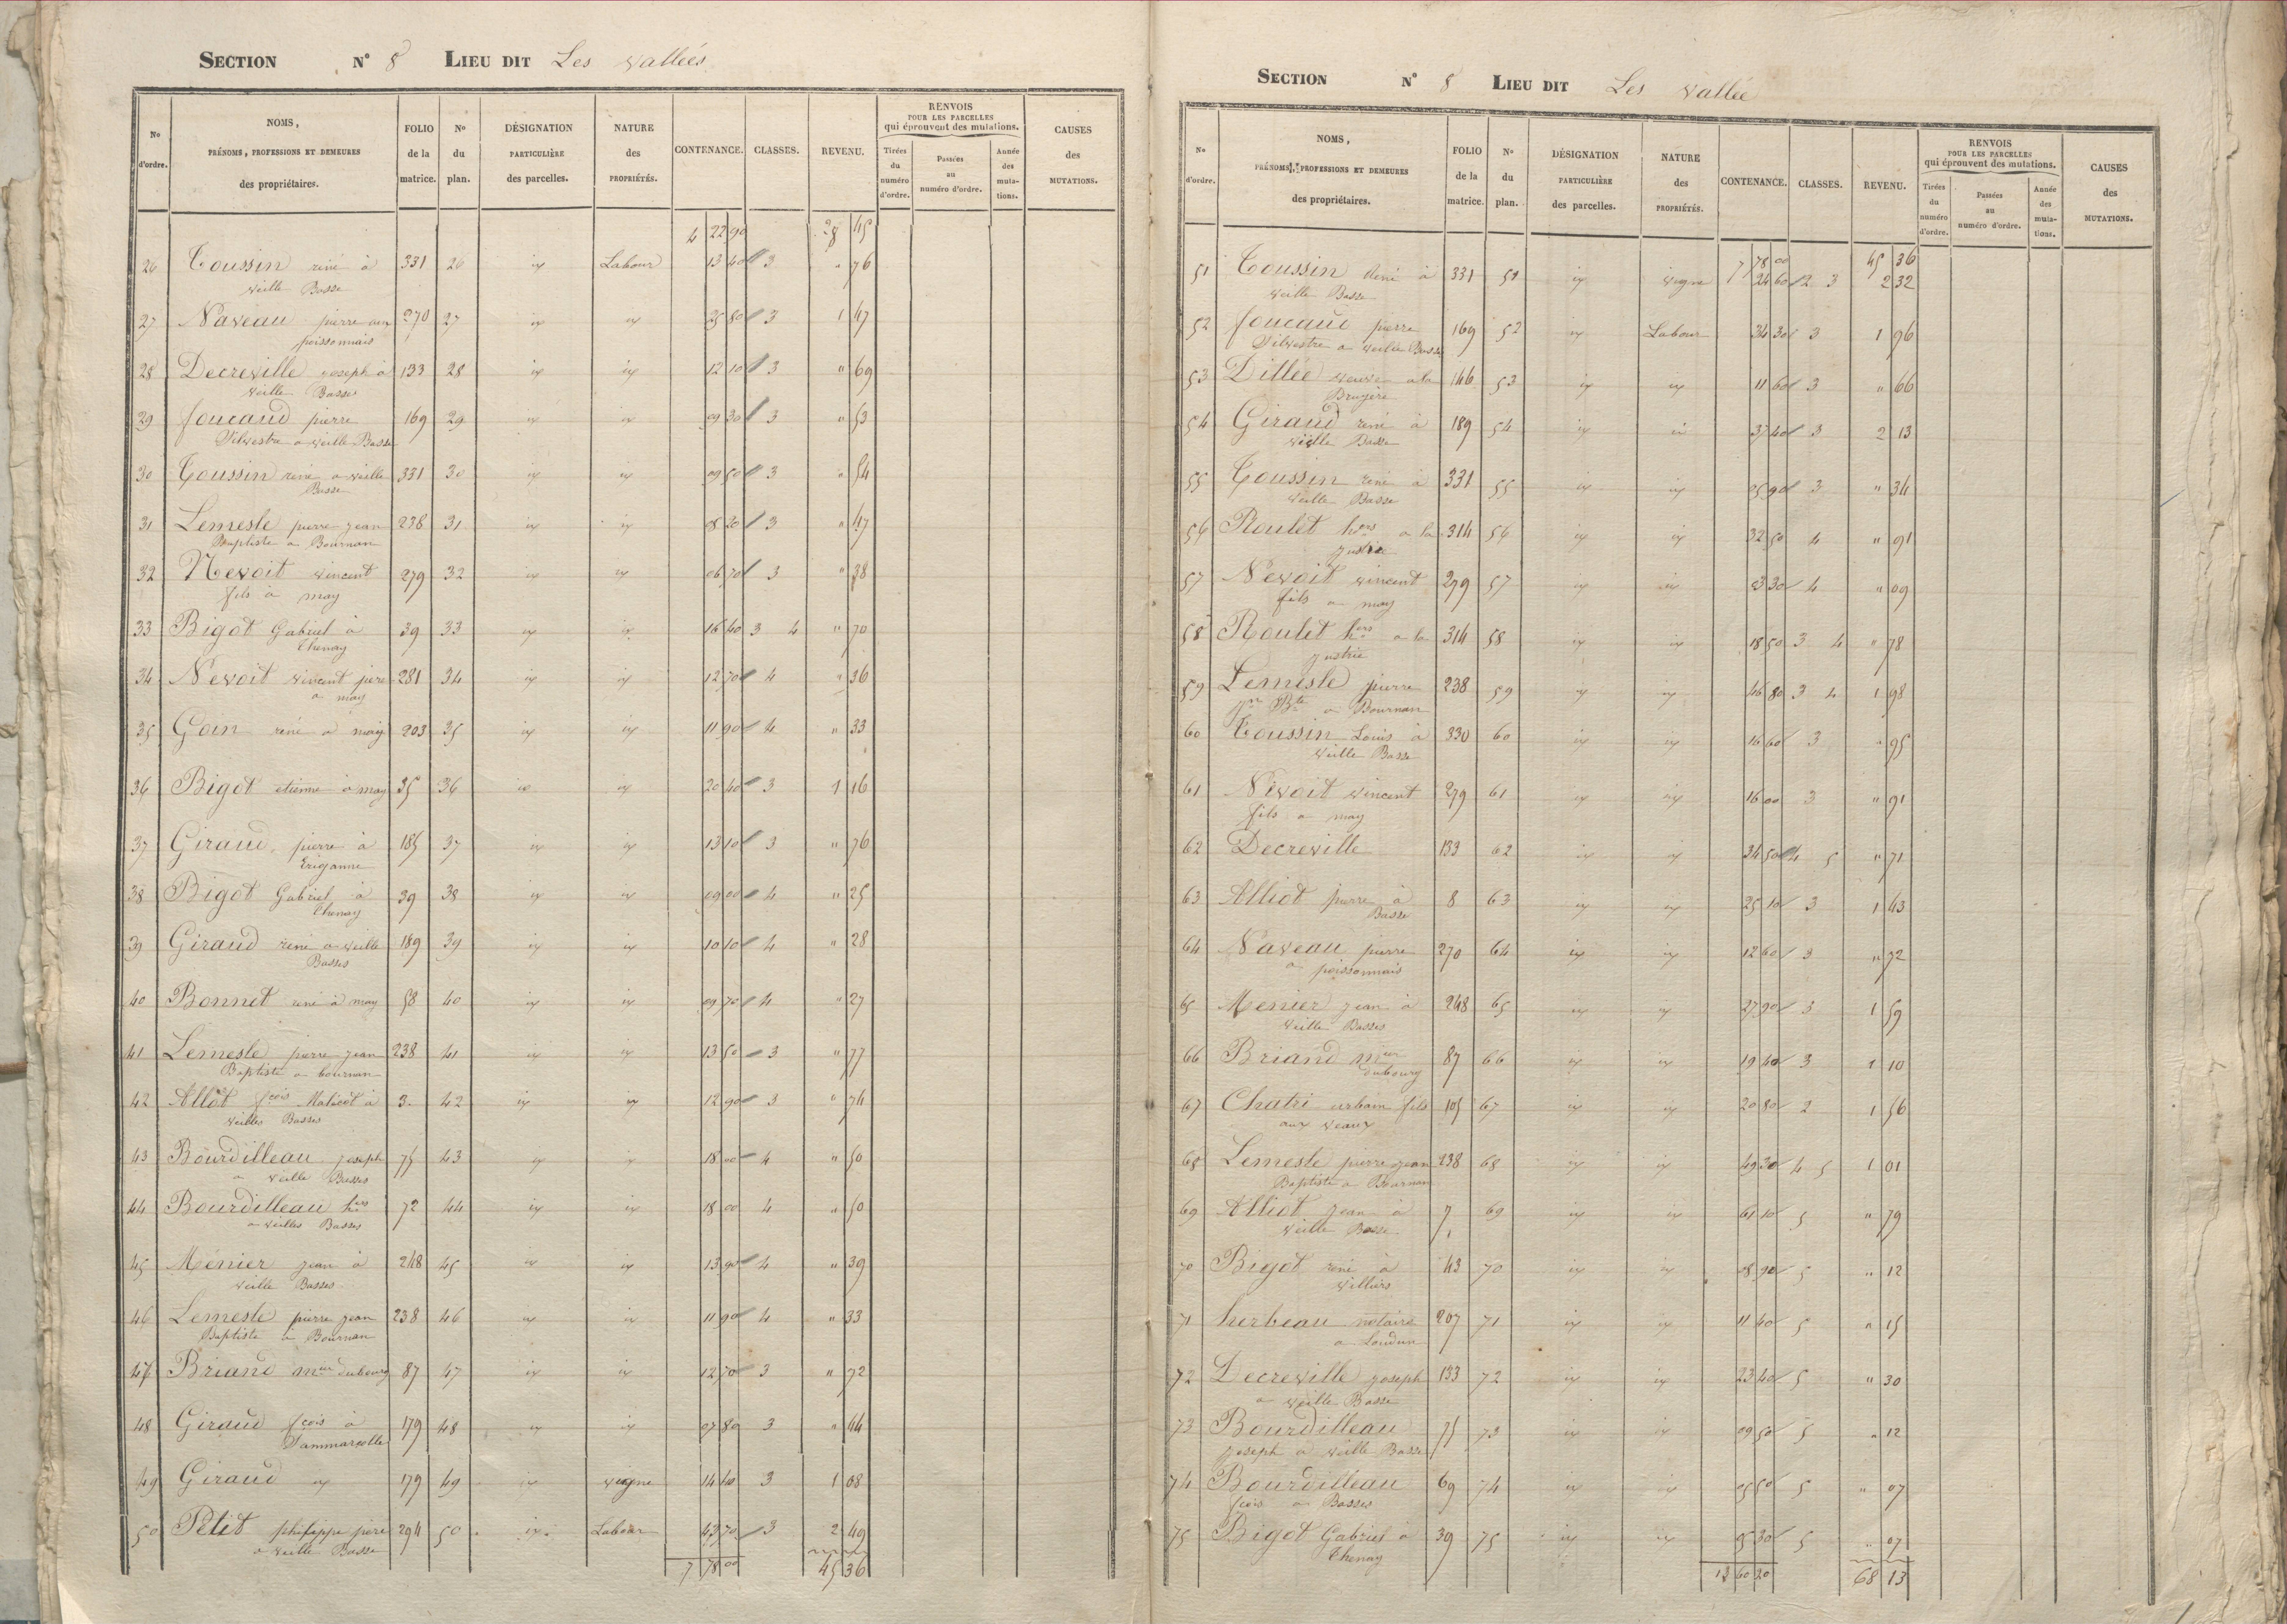 SECTION N° 8 LIEU DIT Les Vallées
No d'ordre. NOMS, PRÉNOMS, PROFESSIONS ET DEMEURES des propriétaires. FOLIO de la matrice. No du plan. DÉSIGNATION PARTICULIÈRE des parcelles. NATURE des PROPRIÉTÉS. CONTENANCE. CLASSES. REVENU. RENVOIS POUR LES PARCELLES qui éprouvent des mutations. Tirées du numéro d'ordre. Passées au numéro d'ordre. Année des mutations. CAUSES des MUTATIONS.
4 22 90 28 45
26 Toussin réné à 331 26 id Labour 13 40 3 " 76
Veille Basse
27 Naveau pierre aux 270 27 id id 25 80 3 1 47
poissonnais
28 Decreville joseph à 133 28 id id 12 10 3 " 69
Veille Basses
29 foucaud pierre 169 29 id id 09 30 3 " 53
Silvestre a Veille Basse
30 Toussin réné a Veille 331 30 id id 09 50 3 " 54
Basse
31 Lemesle pierre jean 238 31 id id 08 20 3 " 47
Baptiste a Bournan
32 Nevoit vincent 279 32 id id 06 70 3 " 38
fils a may
33 Bigot Gabriel à 39 33 id id 16 40 3 4 " 70
Thenay
34 Nevoit vincent père 281 34 id id 12 70 4 " 36
a may
35 Goin réné a may 203 35 id id 11 90 4 " 33
36 Bigot etienne à may 35 36 id id 20 40 3 1 16
37 Giraud pierre à 185 37 id id 13 10 3 " 76
38 Bigot Gabriel à 39 38 id id 09 00 4 " 25
Thenay
39 Giraud réné a Veille 189 39 id id 10 10 4 " 28
Basses
40 Bonnet réné à may 58 40 id id 09 70 4 " 27
41 Lemesle pierre jean 238 41 id id 13 50 3 " 77
Baptiste a bournan
42 Allot fcois Malicot à 3 42 id id 12 90 3 " 74
Veilles Basses
43 Bourdilleau joseph 75 43 id id 18 00 4 " 50
a Veille Basses
44 Bourdilleau hers 72 44 id id 18 00 4 " 50
a Veilles Basses
45 Ménier jean à 248 45 id id 13 90 4 " 39
Veille Basses
46 Lemesle pierre jean 238 46 id id 11 90 4 " 33
Baptiste a Bournan
47 Briand meur dubourg 87 47 id id 12 70 3 " 72
48 Giraud fcois à 179 48 id id 07 80 3 " 44
Sammarcolle
49 Giraud id 179 49 id vigne 14 40 3 1 08
50 Petit philippe père 294 50 id Labour 43 70 3 2 49
a Veille Basse
7 78 00 45 36
SECTION N° 8 LIEU DIT Les Vallée
No d'ordre. NOMS, PRÉNOMS, PROFESSIONS ET DEMEURES des propriétaires. FOLIO de la matrice. No du plan. DÉSIGNATION PARTICULIÈRE des parcelles. NATURE des PROPRIÉTÉS. CONTENANCE. CLASSES. REVENU. RENVOIS POUR LES PARCELLES qui éprouvent des mutations. Tirées du numéro d'ordre. Passées au numéro d'ordre. Année des mutations. CAUSES des MUTATIONS.
7 78 00 45 36
51 Toussin réné à 331 51 id vigne 24 60 2 3 2 32
Veille Basse
52 foucaud pierre 169 52 id Labour 34 30 3 1 96
Silvestre a Veille Basse
53 Dillée veuve a la 146 53 id id 11 60 3 " 66
Bruyère
54 Giraud réné à 189 54 id id 37 40 3 2 13
Vielle Basse
55 Toussin réné à 331 55 id id 05 90 3 " 34
Veille Basse
56 Roulet hers a la 314 56 id id 32 50 4 " 91
57 Nevoit vincent 279 57 id id 03 30 4 " 09
fils a may
58 Roulet hers a la 314 58 id id 18 50 3 4 " 78
59 Lemesle pierre 238 59 id id 46 80 3 4 1 98
jn Bte a Bournan
60 Toussin Louis à 330 60 id id 16 60 3 " 95
Veille Basse
61 Nevoit vincent 279 61 id id 16 00 3 " 91
fils a may
62 Decreville 133 62 id id 34 50 4 5 " 71
63 Alliot pierre à 8 63 id id 25 10 3 1 43
Basse
64 Naveau pierre 270 64 id id 12 60 3 " 72
a poissonnais
65 Menier jean à 248 65 id id 27 90 3 1 59
Veille Basses
66 Briand meur 87 66 id id 19 40 3 1 10
dubourg
67 Chatri urbain fils 105 67 id id 20 80 2 1 56
aux veaux
68 Lemesle pierre jean 238 68 id id 49 30 4 5 1 01
Baptiste a Bournan
69 Alliot jean à 7 69 id id 61 10 5 " 79
Veille Basse
70 Bigot réné à 43 70 id id 08 90 5 " 12
Villiers
71 herbeau notaire 207 71 id id 11 40 5 " 15
a Loudun
72 Decreville joseph 133 72 id id 23 40 5 " 30
a Veille Basse
73 Bourdilleau 75 73 id id 09 50 5 " 12
joseph a Veille Basse
74 Bourdilleau 69 74 id id 05 50 5 " 07
fcois a Basses
75 Bigot Gabriel à 39 75 id id 05 30 5 " 07
Thenay
13 60 20 68 13